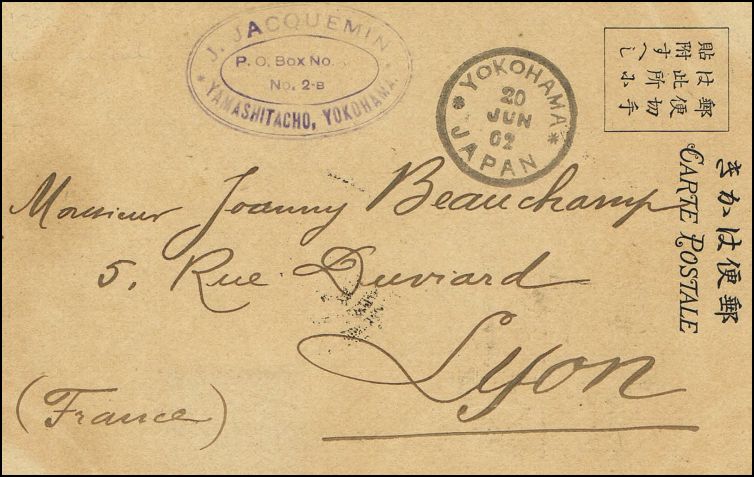 J. JACQUEMIN
P. O. Box No.
No. 2-B
* YAMASHITACHO, YOKOHAMA. *
* YOKOHAMA *
20
JUN
02
JAPAN
郵便切手
は此所小
貼附すへし
郵便はかき
CARTE POSTALE
Monsieur Joanny Beauchamp
5. Rue Duviard
Lyon
(France)